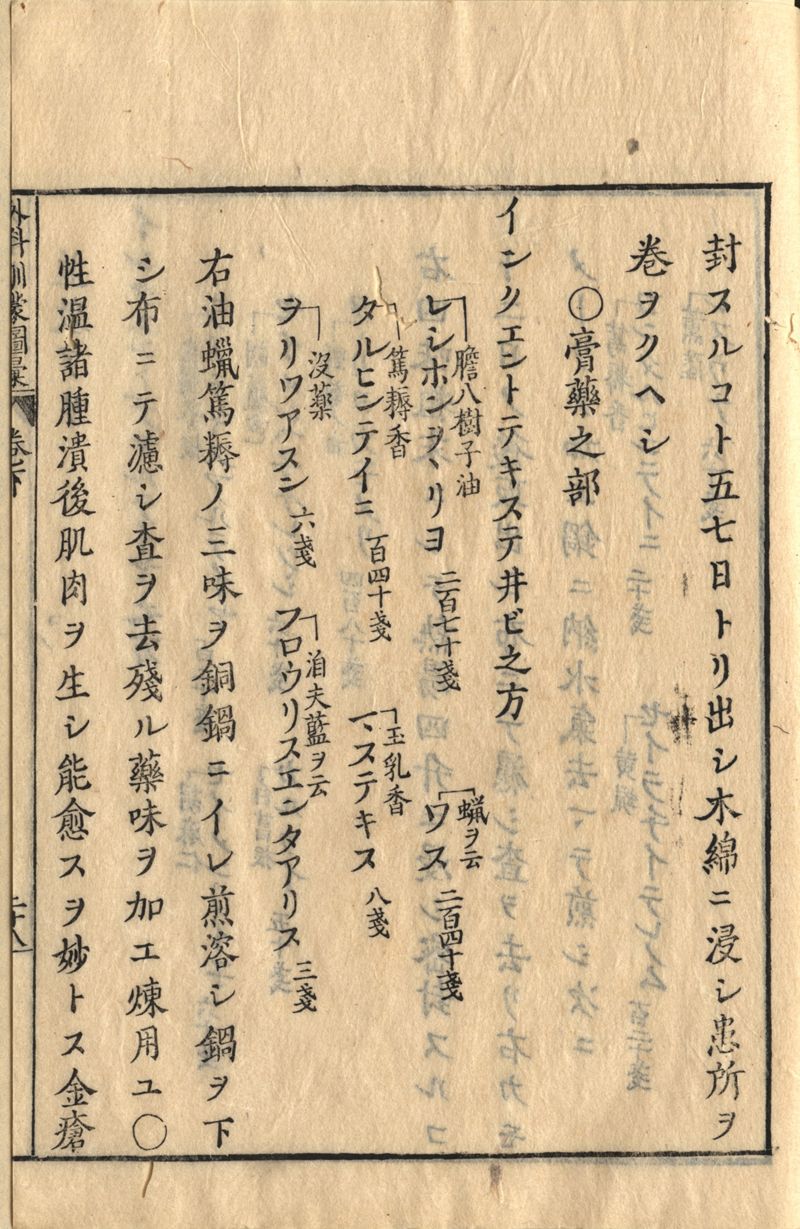 封スルコト五七日トリ出シ木綿ニ浸シ患所ヲ
巻ヲクヘシ
〇膏藥之部
インクエントテキステ井ビ之方
膽八樹子油
レシホンヲヽリヨ 二百七十戔
蝋ヲ云
ワス 二百四十戔
篤耨香
タルヒンテイニ 百四十戔
玉乳香
マヽステキス 八戔
沒藥
ヲリワアスン 六戔
洎夫藍ヲ云
フロウリスエンタアリス 三戔
右油蠟篤耨ノ三味ヲ銅鍋ニイレ煎溶シ鍋ヲ下
シ布ニテ濾シ査ヲ去殘ル藥味ヲ加エ煉用ユ〇
性温諸腫潰後肌肉ヲ生シ能愈スヲ妙トス金瘡
外科訓蒙圖彙 卷下
二十八